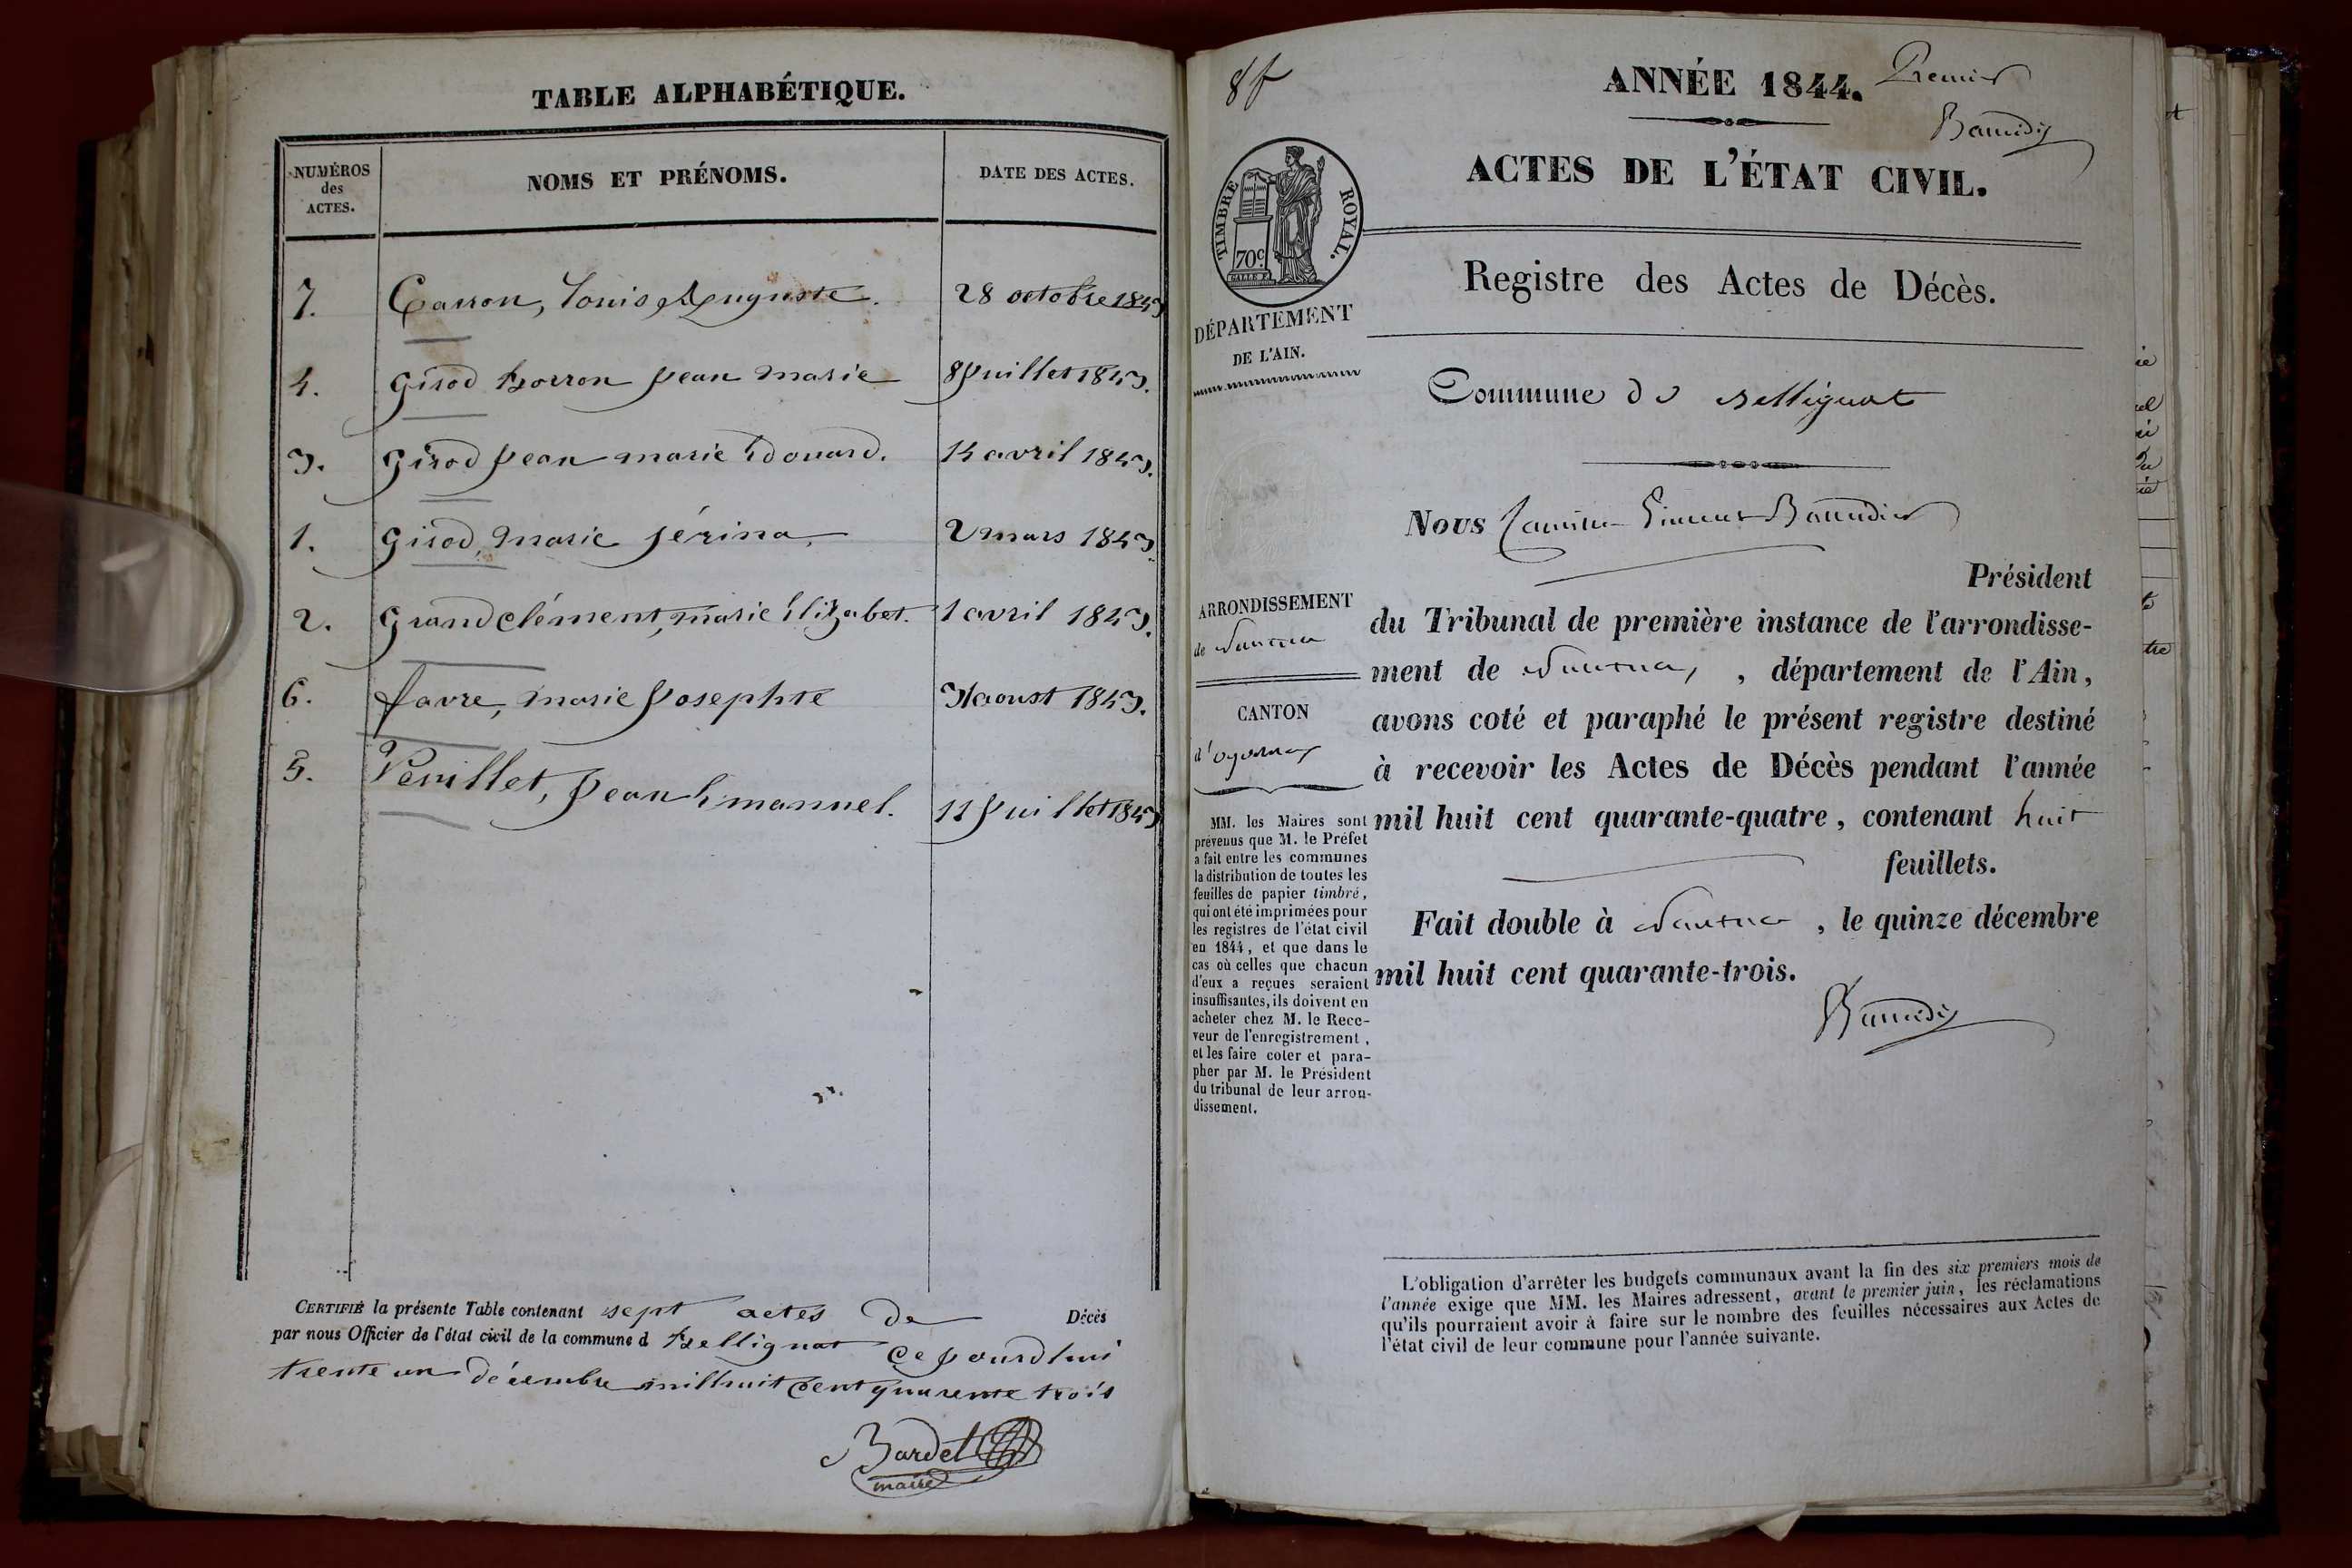 TABLE ALPHABÉTIQUE.
NUMÉROS des ACTES.
NOMS ET PRÉNOMS.
DATE DES ACTES.
7. Carron, Louis Auguste. 28 octobre 1843
4. Girod Borron Jean marie 8 Juillet 1843.
3. Girod Jean marie Edouard. 14 avril 1843.
1. Girod, Marie Sérina. 2 mars 1843.
2. Grandclément, marie Elizabet. 1 avril 1843.
6. favre, marie Josephte 31 aoust 1843.
5. Pevillet, Jean Emannel. 11 Juillet 1843
CERTIFIÉ la présente Table contenant sept actes de Décès
par nous Officier de l'état civil de la commune d Bellignat ce jourdhui
trente un décembre mil huit cent quarente trois
Bardet
maire
8 f
ANNÉE 1844. Premier
ACTES DE L'ÉTAT CIVIL.
TIMBRE ROYAL.
70c.
Registre des Actes de Décès.
DÉPARTEMENT
DE L'AIN.
Commune de Bellignat
Nous Baudier
Président
du Tribunal de première instance de l'arrondisse-
ment de Nantua, , département de l'Ain,
avons coté et paraphé le présent registre destiné
à recevoir les Actes de Décès pendant l'année
mil huit cent quarante-quatre, contenant huit
feuillets.
Fait double à Nantua , le quinze décembre
mil huit cent quarante-trois.
ARRONDISSEMENT
de Nantua
CANTON
d'oyonnax
MM. les Maires sont
prévenus que M. le Préfet
a fait entre les communes
la distribution de toutes les
feuilles de papier timbré,
qui ont été imprimées pour
les registres de l'état civil
en 1844, et que dans le
cas où celles que chacun
d'eux a reçues seraient
insuffisantes, ils doivent en
acheter chez M. le Rece-
veur de l'enregistrement,
et les faire coter et para-
pher par M. le Président
du tribunal de leur arron-
dissement.
L'obligation d'arrêter les budgets communaux avant la fin des six premiers mois de
l'année exige que MM. les Maires adressent, avant le premier juin, les réclamations
qu'ils pourraient avoir à faire sur le nombre des feuilles nécessaires aux Actes de
l'état civil de leur commune pour l'année suivante.